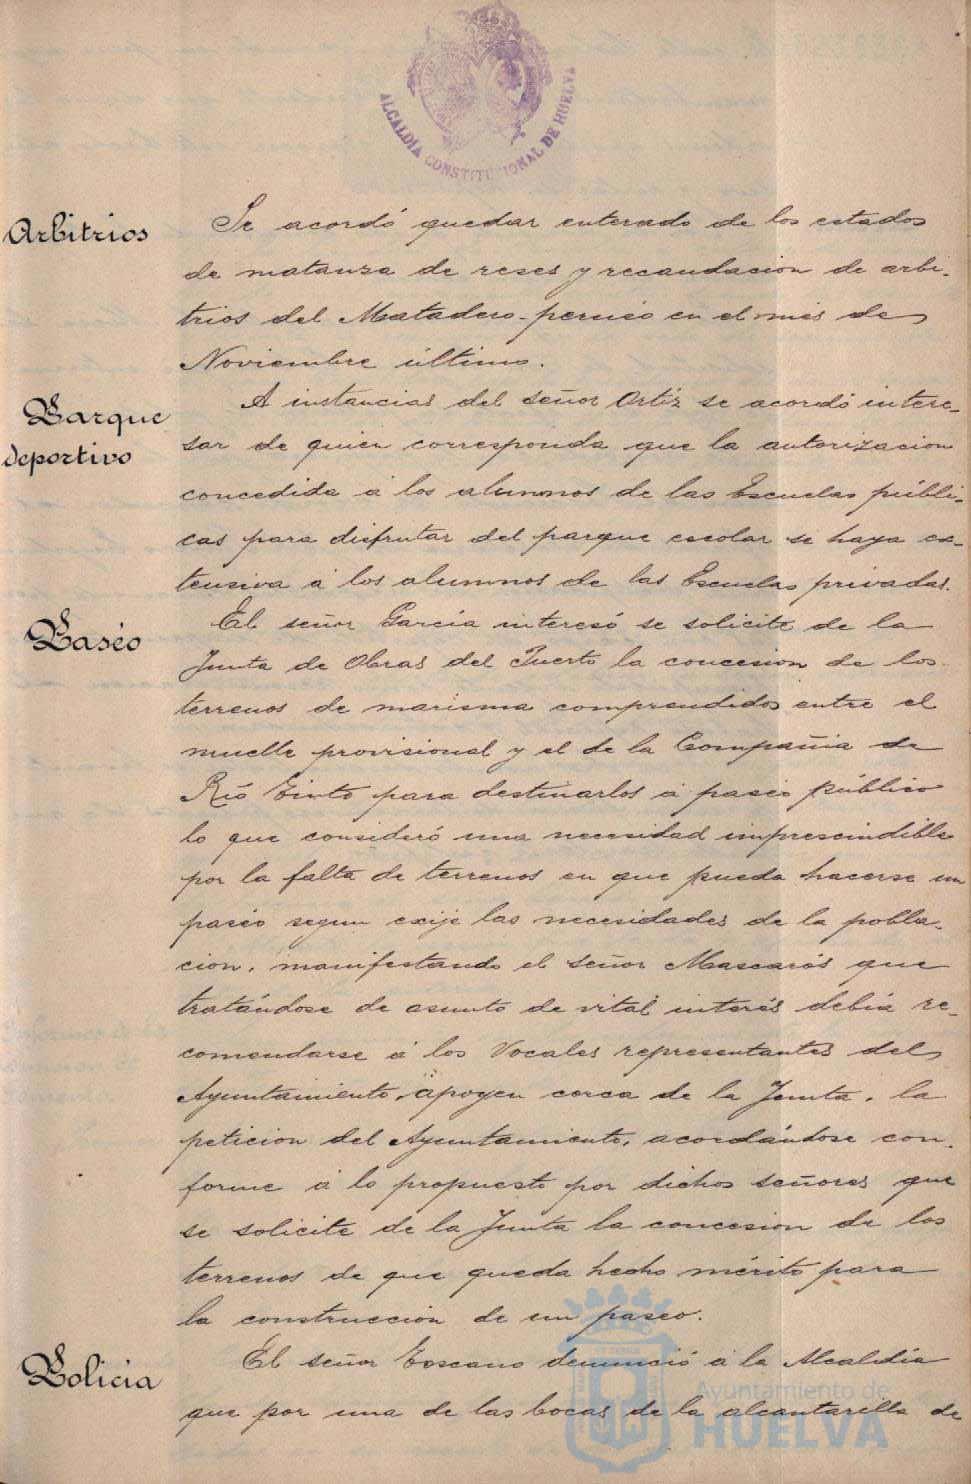 ALCALDIA CONSTITUCIONAL DE HUELVA
Arbitrios
Se acordó quedar enterado de los estados
de matanza de reses y recaudacion de arbi-
trios del Matadero-perneo en el més de
Noviembre último.
Parque
deportivo
A instancias del señor Ortiz se acordó intere-
sar de quien corresponda que la autorizacion
concedida á los alumnos de las Escuelas públi-
cas para disfrutar del parque escolar se haga ex-
tensiva á los alumnos de las Escuelas privadas.
Paséo
El señor García interesó se solicite de la
Junta de Obras del Puerto la concesion de los
terrenos de marisma comprendidos entre el
muelle provisional y el de la Compañia de
Rió Tinto para destinarlos á paseo público
lo que consideró una necesidad imprescindible
por la falta de terrenos en que pueda hacerse un
paséo segun exije las necesidades de la pobla-
cion, manifestando el señor Mascarós que
tratándose de asunto de vital interés debia re-
comendarse á los Vocales representantes del
Ayuntamiento, apoyen cerca de la Junta, la
peticion del Ayuntamiento, acordándose con-
forme á lo propuesto por dichos señores que
se solicite de la Junta la concesion de los
terrenos de que queda hecho mérito para
la construcción de un paseo.
Policia
El señor Toscano denunció á la Alcaldia
que por una de las bocas de la alcantarilla de
Ayuntamiento de
HUELVA